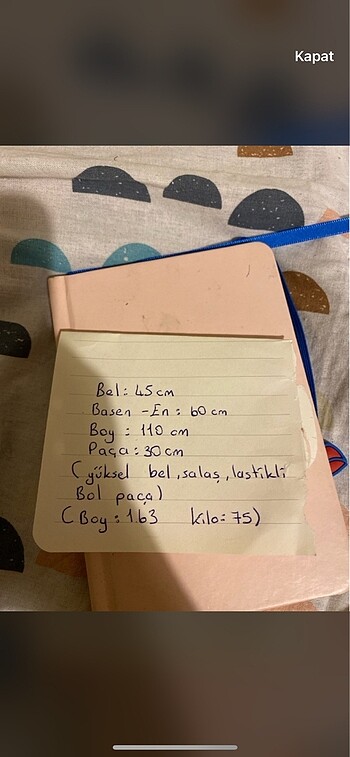 Kapat
Bel: 45 cm
Basen - En: 60 cm
Boy: 110 cm
Paça: 30 cm
(yüksel bel, salaş, lastikli
Bol paça)
(Boy: 1.63 kilo: 75)